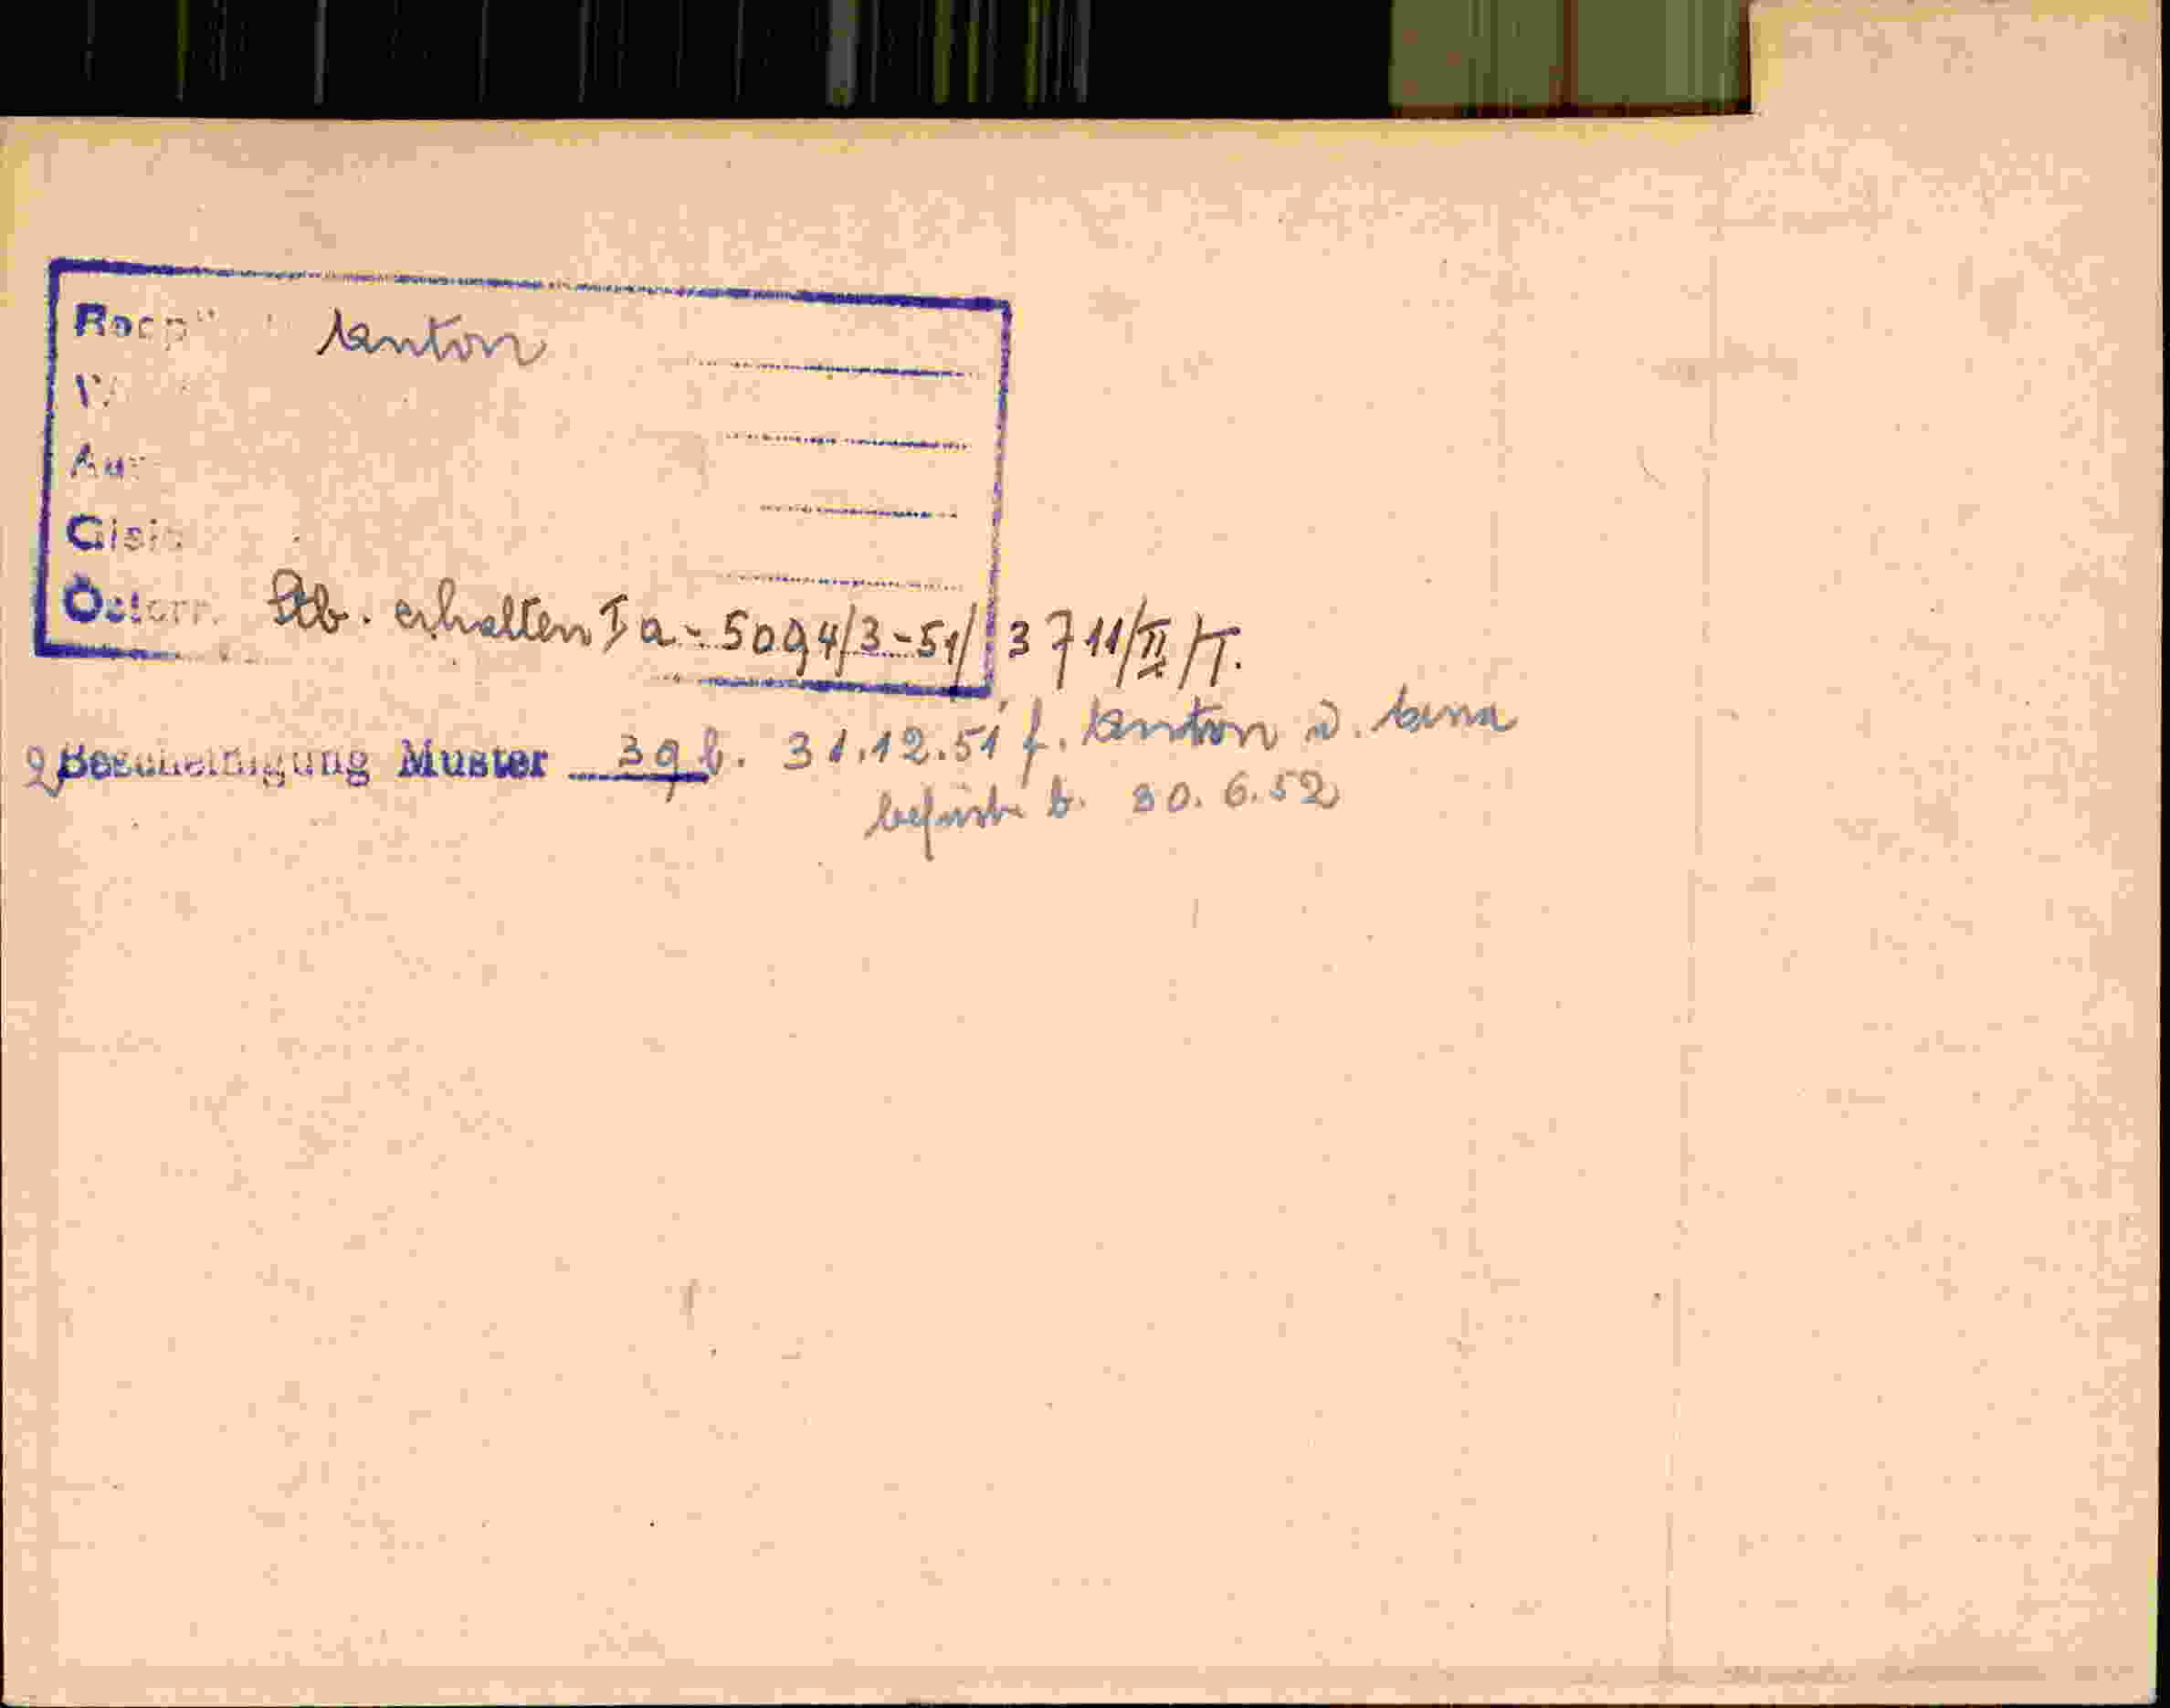 Anton
Stb. erhalten I a - 5094/3-51/ 3711/II/T.
2 Bescheinigung Muster 39 b. 31.12.51 f. Anton u. Anna
befrist. b. 30.6.52